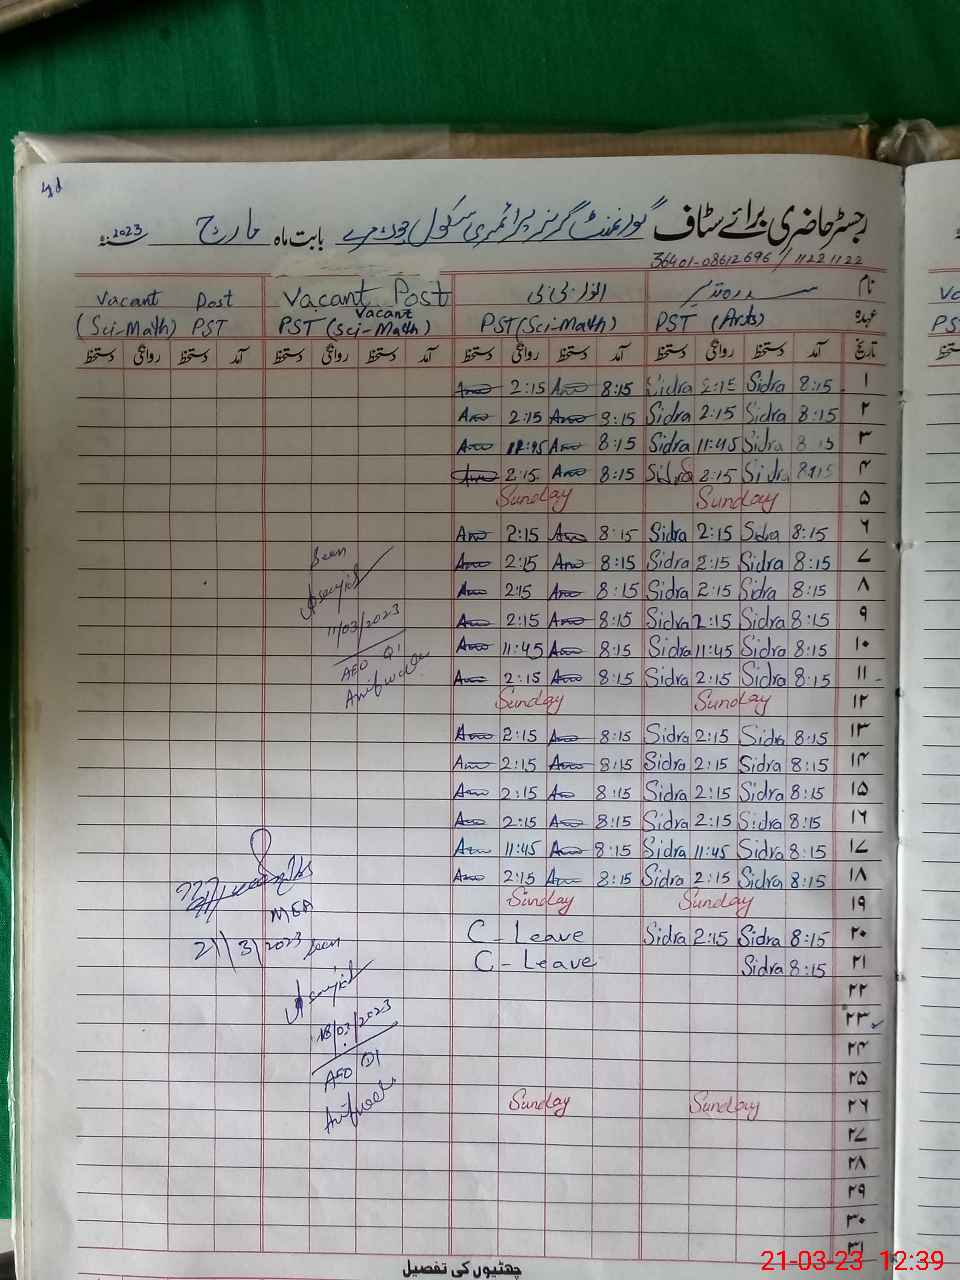 رجسٹر حاضری برائے سٹاف گورنمنٹ گرلز پرائمری سکول بابت ماہ مارچ 2023
36401-08612696 / 11221122
نام سدرہ نذیر Vacant Post Vacant Post
عہدہ PST (Arts) PST (Sci-Math) PST (Sci-Math) Vacant (Sci-Math) PST
تاریخ آمد دستخط روانگی دستخط آمد دستخط روانگی دستخط آمد دستخط روانگی دستخط آمد دستخط روانگی دستخط
۱ 8:15 Sidra 2:15 Sidra 8:15 2:15
۲ 8:15 Sidra 2:15 Sidra 8:15 2:15
۳ 8:15 Sidra 11:45 Sidra 8:15 11:45
۴ 8:15 Sidra 2:15 Sidra 8:15 2:15
۵ Sunday Sunday
۶ 8:15 Sidra 2:15 Sidra 8:15 2:15
۷ 8:15 Sidra 2:15 Sidra 8:15 2:15
۸ 8:15 Sidra 2:15 Sidra 8:15 2:15
۹ 8:15 Sidra 2:15 Sidra 8:15 2:15
۱۰ 8:15 Sidra 11:45 Sidra 8:15 11:45
۱۱ 8:15 Sidra 2:15 Sidra 8:15 2:15
۱۲ Sunday Sunday
۱۳ 8:15 Sidra 2:15 Sidra 8:15 2:15
۱۴ 8:15 Sidra 2:15 Sidra 8:15 2:15
۱۵ 8:15 Sidra 2:15 Sidra 8:15 2:15
۱۶ 8:15 Sidra 2:15 Sidra 8:15 2:15
۱۷ 8:15 Sidra 11:45 Sidra 8:15 11:45
۱۸ 8:15 Sidra 2:15 Sidra 8:15 2:15
۱۹ Sunday Sunday
۲۰ 8:15 Sidra 2:15 Sidra C-Leave
۲۱ 8:15 Sidra C-Leave
۲۲
۲۳
۲۴
۲۵
۲۶ Sunday Sunday
۲۷
۲۸
۲۹
۳۰
۳۱
Seen
11/03/2023
AEO
MEA
21/3/2023
Seen
18/03/2023
AEO
چھٹیوں کی تفصیل
21-03-23 12:39